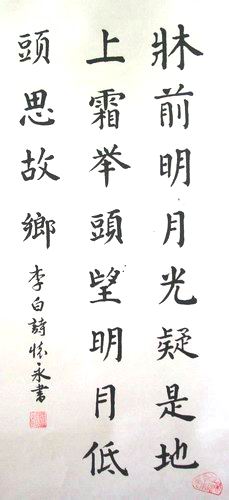 牀前明月光疑是地
上霜举頭望明月低
頭思故鄉
李白詩 懷永書